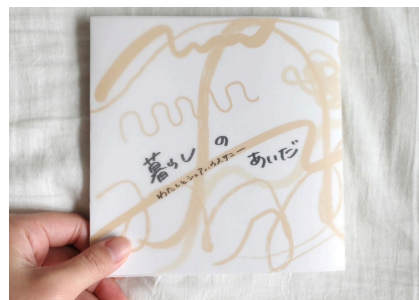 暮らしの
あいだ
わたしとシェアハウスサニー